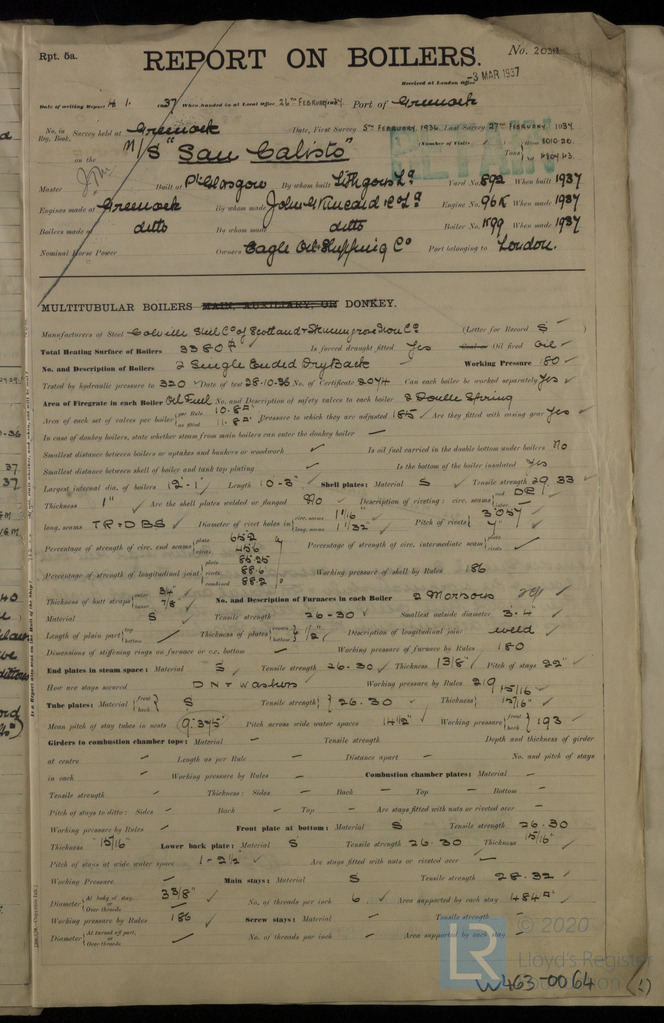 Rpt. 5a.
REPORT ON BOILERS.
No.
Received at London Office -3 MAR 1937
Date of writing Report 1. 1937 When handed in at Local Office 26TH FEBRUARY 1937. Port of Greenock
No. in Reg. Book. Survey held at Greenock Date, First Survey 5TH FEBRUARY, 1936. Last Survey 27TH FEBRUARY 1937.
(Number of Visits
on the M/S "San Calisto" Tons
Master Built at Pt. Glasgow By whom built Lithgows Ld Yard No. 892 When built 1937
Engines made at Greenock By whom made John G Kincaid & Co Ld Engine No. 96K When made 1937
Boilers made at ditto By whom made ditto Boiler No. K99 When made 1937
Nominal Horse Power Owners Eagle Oil Shipping Co Port belonging to London.
MULTITUBULAR BOILERS MAIN, AUXILIARY, OR DONKEY.
Manufacturers of Steel Colville Steel Co of Scotland (Letter for Record S)
Total Heating Surface of Boilers 3380 Is forced draught fitted Yes Coal or Oil fired Oil
No. and Description of Boilers 2 Single Ended Dry Back Working Pressure 180
Tested by hydraulic pressure to 320 Date of test 28.10.36 No. of Certificate 2074 Can each boiler be worked separately Yes
Area of Firegrate in each Boiler Oil Fuel No. and Description of safety valves to each boiler 2 Double Spring
Area of each set of valves per boiler per Rule 10.8 as fitted 11.8 Pressure to which they are adjusted 185 Are they fitted with easing gear Yes
In case of donkey boilers, state whether steam from main boilers can enter the donkey boiler –
Smallest distance between boilers or uptakes and bunkers or woodwork Is oil fuel carried in the double bottom under boilers No
Smallest distance between shell of boiler and tank top plating Is the bottom of the boiler insulated Yes
Largest internal dia. of boilers 12'-1" Length 10-3" Shell plates: Material S Tensile strength 29.33
Thickness 1" Are the shell plates welded or flanged No Description of riveting: circ. seams end DR
long. seams TR & DBS Diameter of rivet holes in circ. seams 1 1/16" long. seams 1 1/32" Pitch of rivets 3.057 7"
Percentage of strength of circ. end seams plate 65.2 rivets 45.6 Percentage of strength of circ. intermediate seam plate rivets
Percentage of strength of longitudinal joint plate 85.25 rivets 88.6 combined 88.2 Working pressure of shell by Rules 186
Thickness of butt straps outer 3/4" inner 7/8" No. and Description of Furnaces in each Boiler 2 Morsons
Material S Tensile strength 26-30 Smallest outside diameter 3'-4"
Length of plain part top bottom Thickness of plates crown bottom 1/2" Description of longitudinal joint weld
Dimensions of stiffening rings on furnace or c.c. bottom – Working pressure of furnace by Rules 180
End plates in steam space: Material S Tensile strength 26.30 Thickness 1 3/8" Pitch of stays 22"
How are stays secured D N & Washers Working pressure by Rules 219
Tube plates: Material front back S Tensile strength 26.30 Thickness 15/16" 15/16"
Mean pitch of stay tubes in nests 9.375" Pitch across wide water spaces 14 1/2" Working pressure front back 193
Girders to combustion chamber tops: Material – Tensile strength Depth and thickness of girder
at centre – Length as per Rule – Distance apart – No. and pitch of stays
in each – Working pressure by Rules – Combustion chamber plates: Material –
Tensile strength – Thickness: Sides – Back – Top – Bottom –
Pitch of stays to ditto: Sides – Back – Top – Are stays fitted with nuts or riveted over –
Working pressure by Rules – Front plate at bottom: Material S Tensile strength 26.30
Thickness 15/16" Lower back plate: Material S Tensile strength 26.30 Thickness 15/16"
Pitch of stays at wide water space 1-2 1/2" Are stays fitted with nuts or riveted over –
Working Pressure – Main stays: Material S Tensile strength 28.32
Diameter At body of stay, or Over threads 3 3/8" No. of threads per inch 6. Area supported by each stay 484
Working pressure by Rules 186 Screw stays: Material – Tensile strength
Diameter At turned off part, or Over threads – No. of threads per inch – Area supported by each stay
© 2020
LR
Lloyd's Register
Foundation
W463-0064